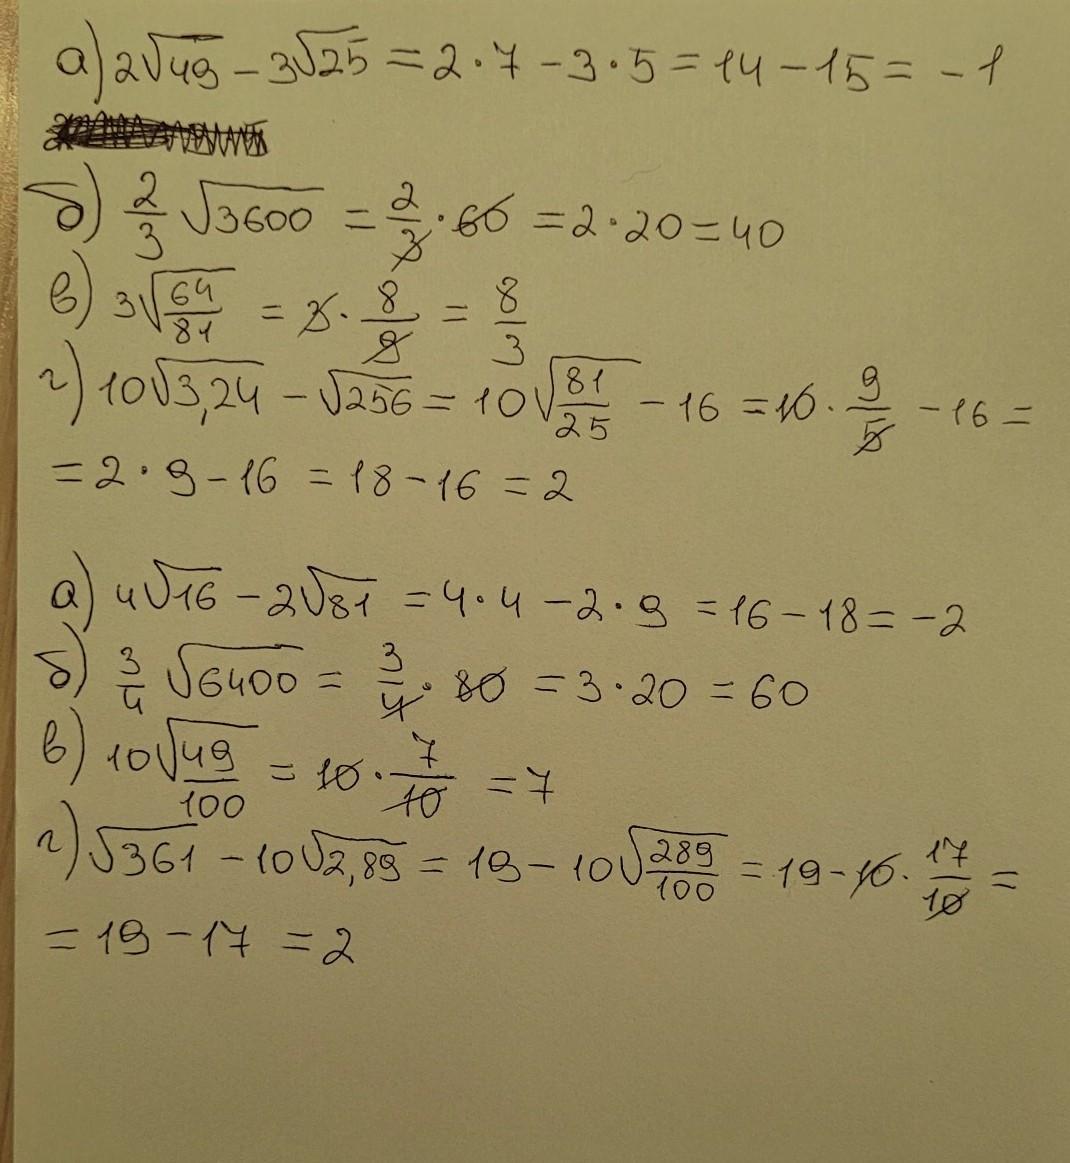 а) 2√49 − 3√25 = 2·7 − 3·5 = 14 − 15 = −1
б) 2/3 √3600 = 2/3 · 60 = 2·20 = 40
в) 3√64/81 = 3 · 8/9 = 8/3
г) 10√3,24 − √256 = 10√81/25 − 16 = 10 · 9/5 − 16 =
= 2·9 − 16 = 18 − 16 = 2
а) 4√16 − 2√81 = 4·4 − 2·9 = 16 − 18 = −2
б) 3/4 √6400 = 3/4 · 80 = 3·20 = 60
в) 10√49/100 = 10 · 7/10 = 7
г) √361 − 10√2,89 = 19 − 10√289/100 = 19 − 10 · 17/10 =
= 19 − 17 = 2